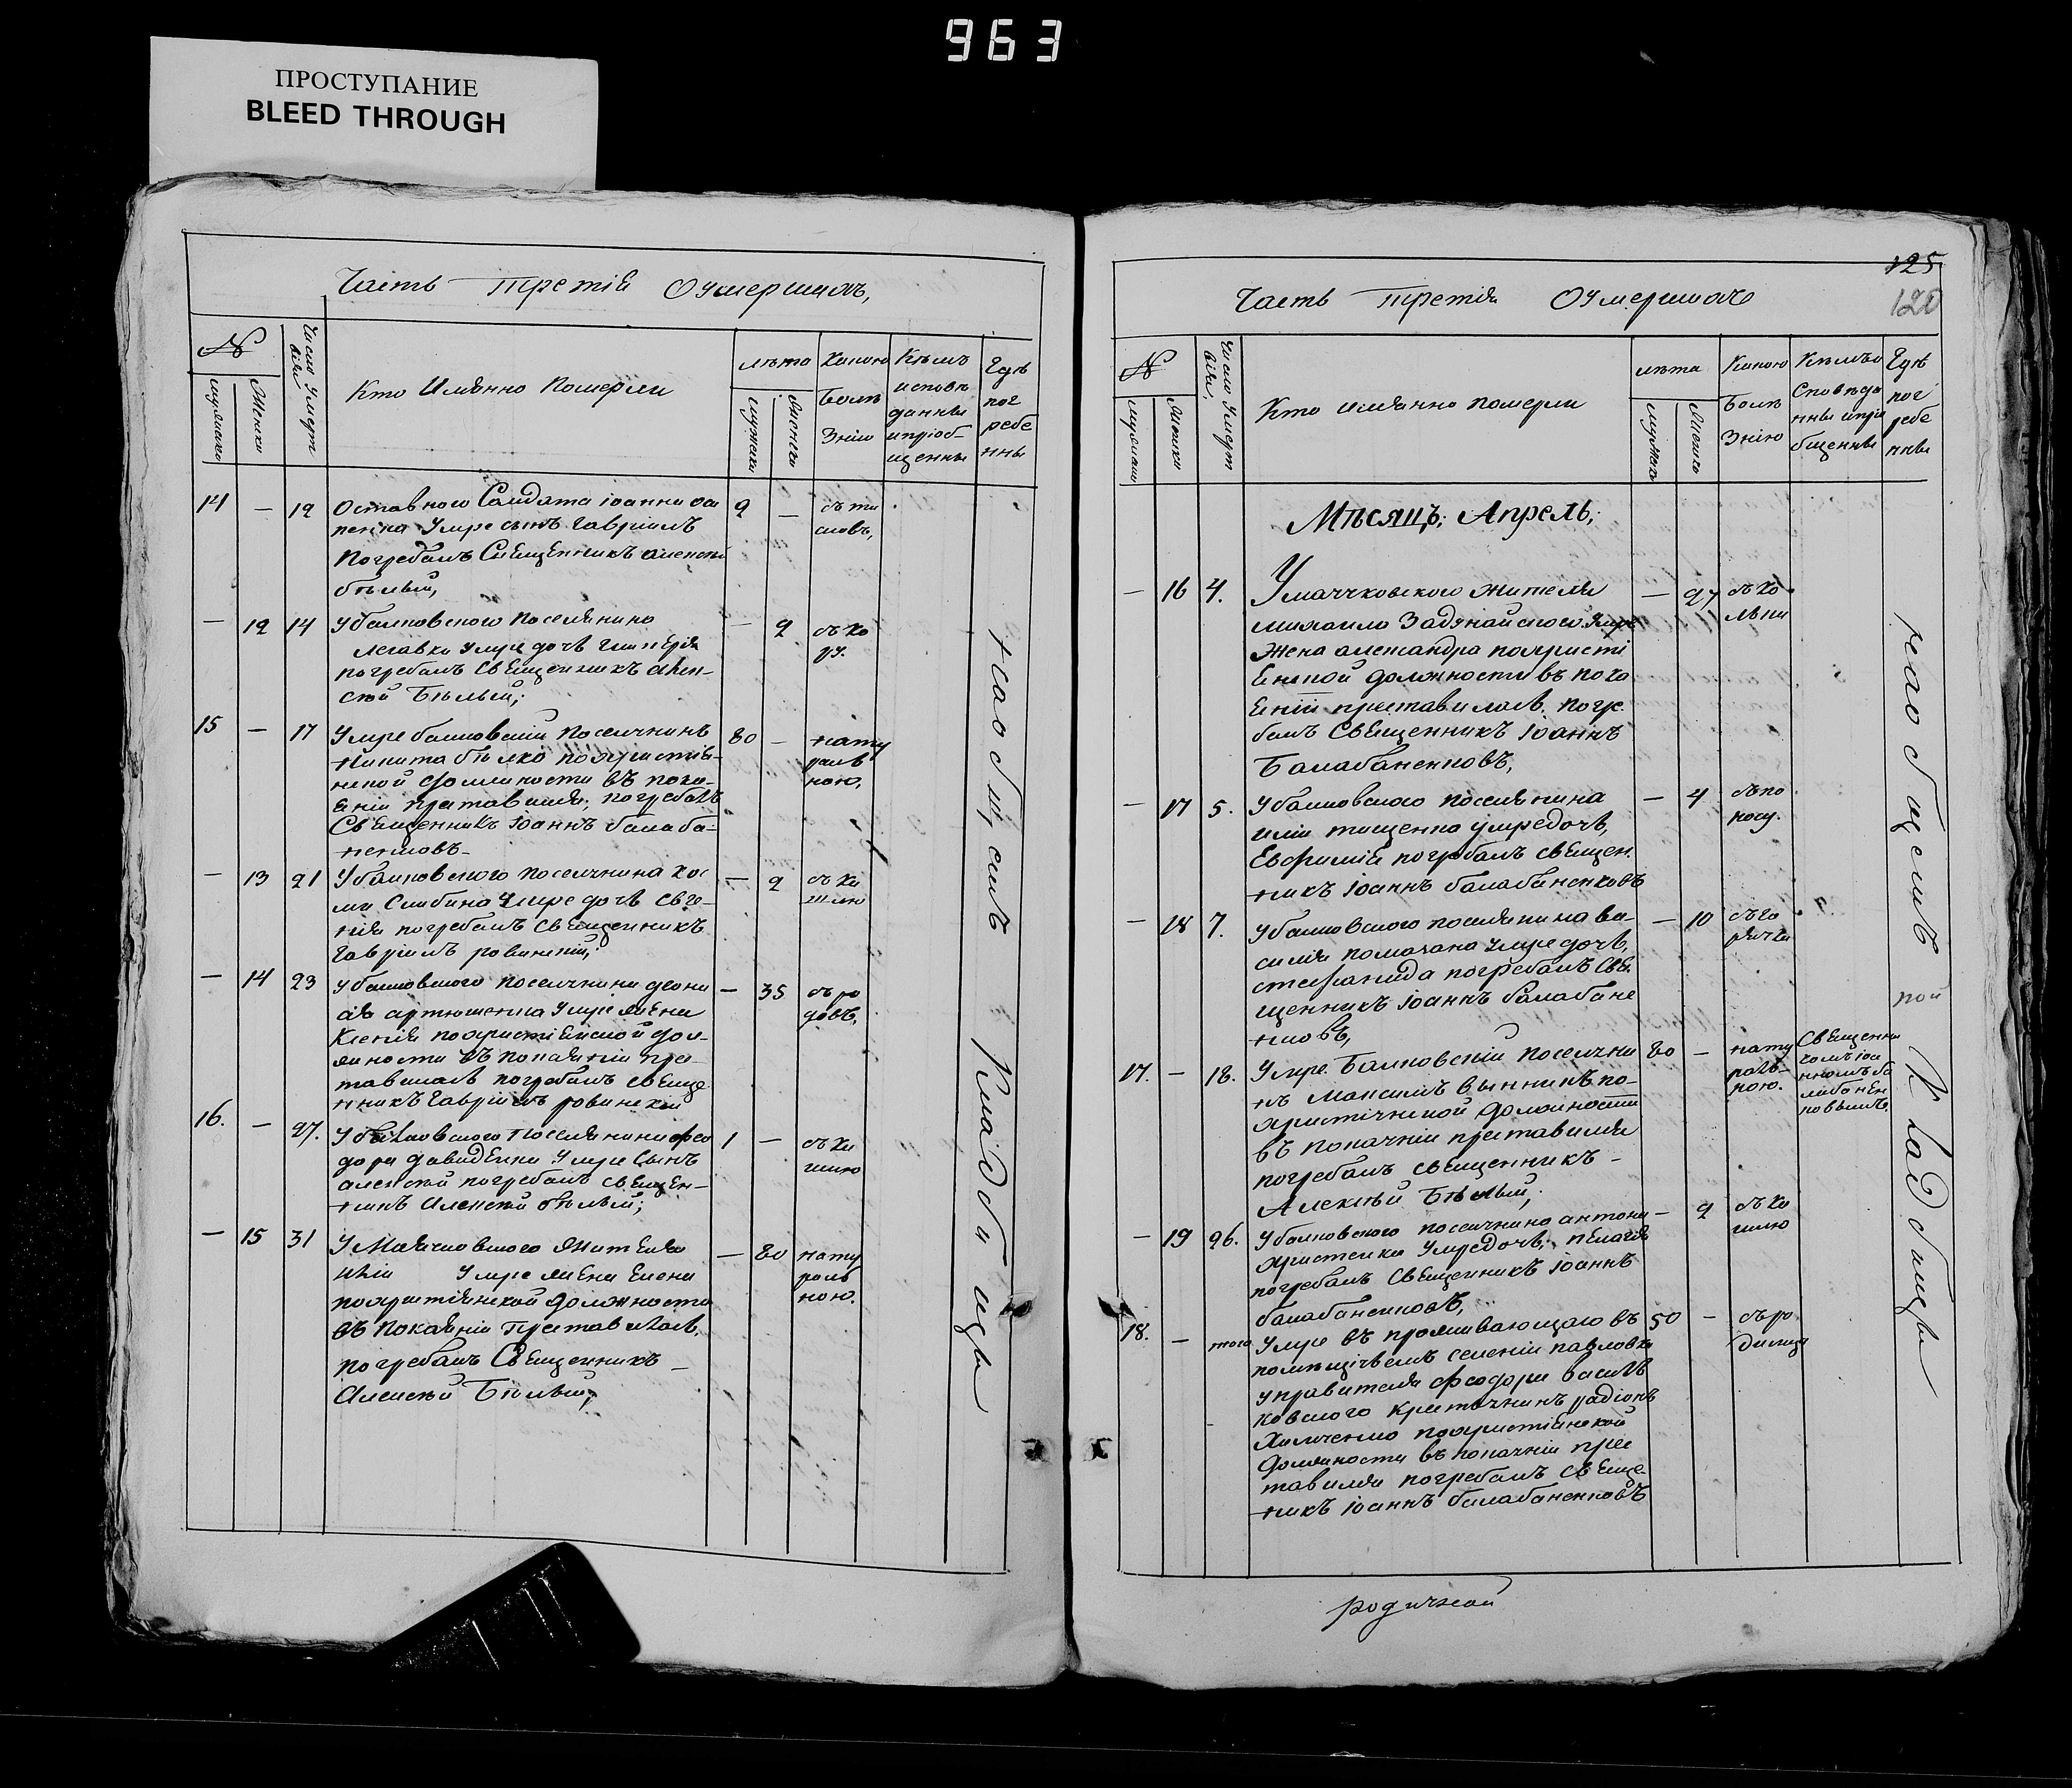 963
ПРОСТУПАНИЕ
BLEED THROUGH
Часть третія Оумершихъ,
№
мужеска
Женски
Число Умертвія
Кто Имянно Померли
лѣто
мужеска
женска
Какою Болѣзнію
Кѣмъ исповѣданны и пріобщенны
Гдѣ погребенны
14 — 12
Оставного Салдата іоанна
пенка Умре сынъ Гавріилъ
Погребалъ Священникъ алексѣй
бѣлый,
9 —
— 12 14
У балковского поселянина
умре дочь
погребалъ священникъ алек-
сѣй Бѣлый;
— 2
15 — 17
Умре балковскій поселянинъ
Никита бѣлко по христіа-
нской должности въ пока-
еніи преставился, погребалъ
Священникъ іоаннъ балаба-
ненковъ
80 —
нату
раль
ною.
— 13 21
У балковского поселянина
умре дочь Евге-
нія погребалъ священникъ
Гавріилъ ровинскій;
— 2
— 14 23
У балковского поселянина
артюшенка умре жена
Ксенія по христіанской дол-
жности въ покаяніи пре-
ставилась погребалъ священ-
никъ Гавріилъ ровинскій
— 35
съ ро
довъ,
16. — 27.
У балковского поселянина Фео
дора давиденка Умре сынъ
алексѣй погребалъ священ-
никъ Алексѣй бѣлый;
1 —
— 15 31
У Маячковского жителя
Иліи Умре жена Елена
по христіянской должности
въ покаяніи преставилась,
погребалъ Священникъ
Алексѣй Бѣлый;
— 80
нату
раль
ною.
на общемъ Кладбищи
125
120
Часть третія Оумершихъ
№
Число Умертвія,
Кто имянно померли
лѣта
Какою Болѣзнію
Кѣмъ исповѣданны и пріобщенны
Гдѣ погребенны
Мѣсяцъ; Апрель;
— 16 4.
У маячковского жителя
михаила Задунайского умре
Жена александра по христі
Енской должности въ пока
Еніи преставилась. погре
балъ Священникъ іоаннъ
Балабаненковъ,
— 27
— 17 5.
У балковского поселянина
иліи тищенка умре дочь,
Евфимія погребалъ священ.
никъ іоаннъ балабаненковъ
— 4
съ по
носу.
— 18 7.
У балковского поселянина ва-
силія помазана умре дочь,
стефанида погребалъ Свя-
щенникъ іоаннъ балабане
нковъ,
— 10
съ го
рячки
17. — 18.
Умре Балковскій поселяни
нъ Максимъ винникъ по-
христіянской должности
въ покаяніи преставился
погребалъ священникъ
Алексѣй Бѣлый;
80 —
нату
раль-
ною.
Священни
комъ іоа
нномъ ба
лабанен
ковымъ.
— 19 26.
У балковского поселянина антона
христенка умре дочь, пелагія
погребалъ священникъ іоаннъ
балабаненковъ,
— 2
18. — того
Умре въ проживающаго въ
помѣщичьемъ селеніи павловкѣ
управителя Феодора Василь
ковского крестянинъ радіонъ
Хилченко по христіянской
должности въ покаяніи пре
ставился погребалъ свяще-
никъ іоаннъ балабаненковъ
50 —
на общемъ Кладбищи